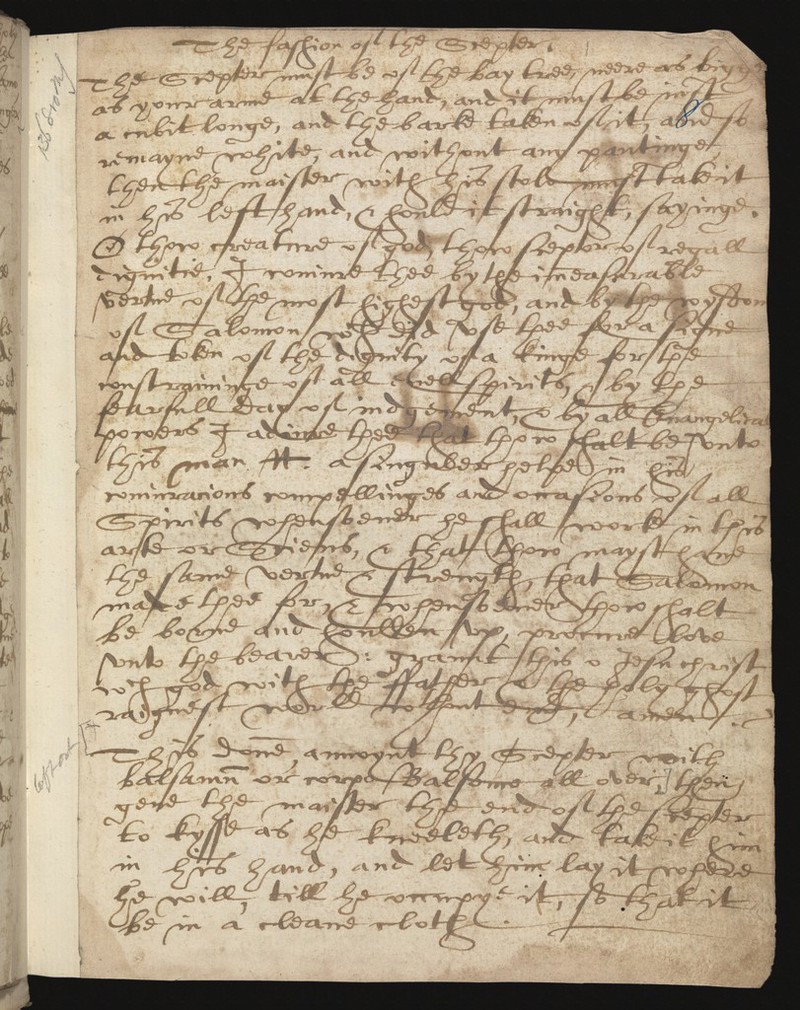 The fashion of the Scepter.
The Scepter must be of the bay tree, neere as bigg
as your arme at the hand, and it must be iust
8
a cubit longe, and the barke taken of it, and so
remayne white, and without any paintinge,
then the maister with his stole must take it
in his left hand, & hould it straight, sayinge.
O thow creature of god, thow scepter of regall
dignitie, I coniure thee by the imeasurable
vertue of the most highest god, and by the wysdom
of Salomon wch did vse thee for a signe
and token of the dignity of a kinge for the
constraininge of all evell spirits, & by the
fearfull day of iudgement, & by all Evangelicall
powers I adiure thee that thow shalt be vnto
this man N. a singuler helpe in his
coniuracions compellinges and occasions of all
Spirits whensoever he shall worke in this
arte or Sciens, & that thow mayst have
the same vertue & strength, that Salomon
made thee for, & whensoever thow shalt
be borne and houlden vp, procure love
vnto the bearer: graunt this o Jesu christ
wch god with the ffather & the holy ghost
raignest world without end, amen.
This done, annoynt thy Scepter with
balsamū or corpo Balsome all over, then
geve the maister the end of the scepter
to kysse as he kneeleth, and take it him
in his hand, and let him lay it where
he will, till he occupye it, so that it
be in a cleane cloth.